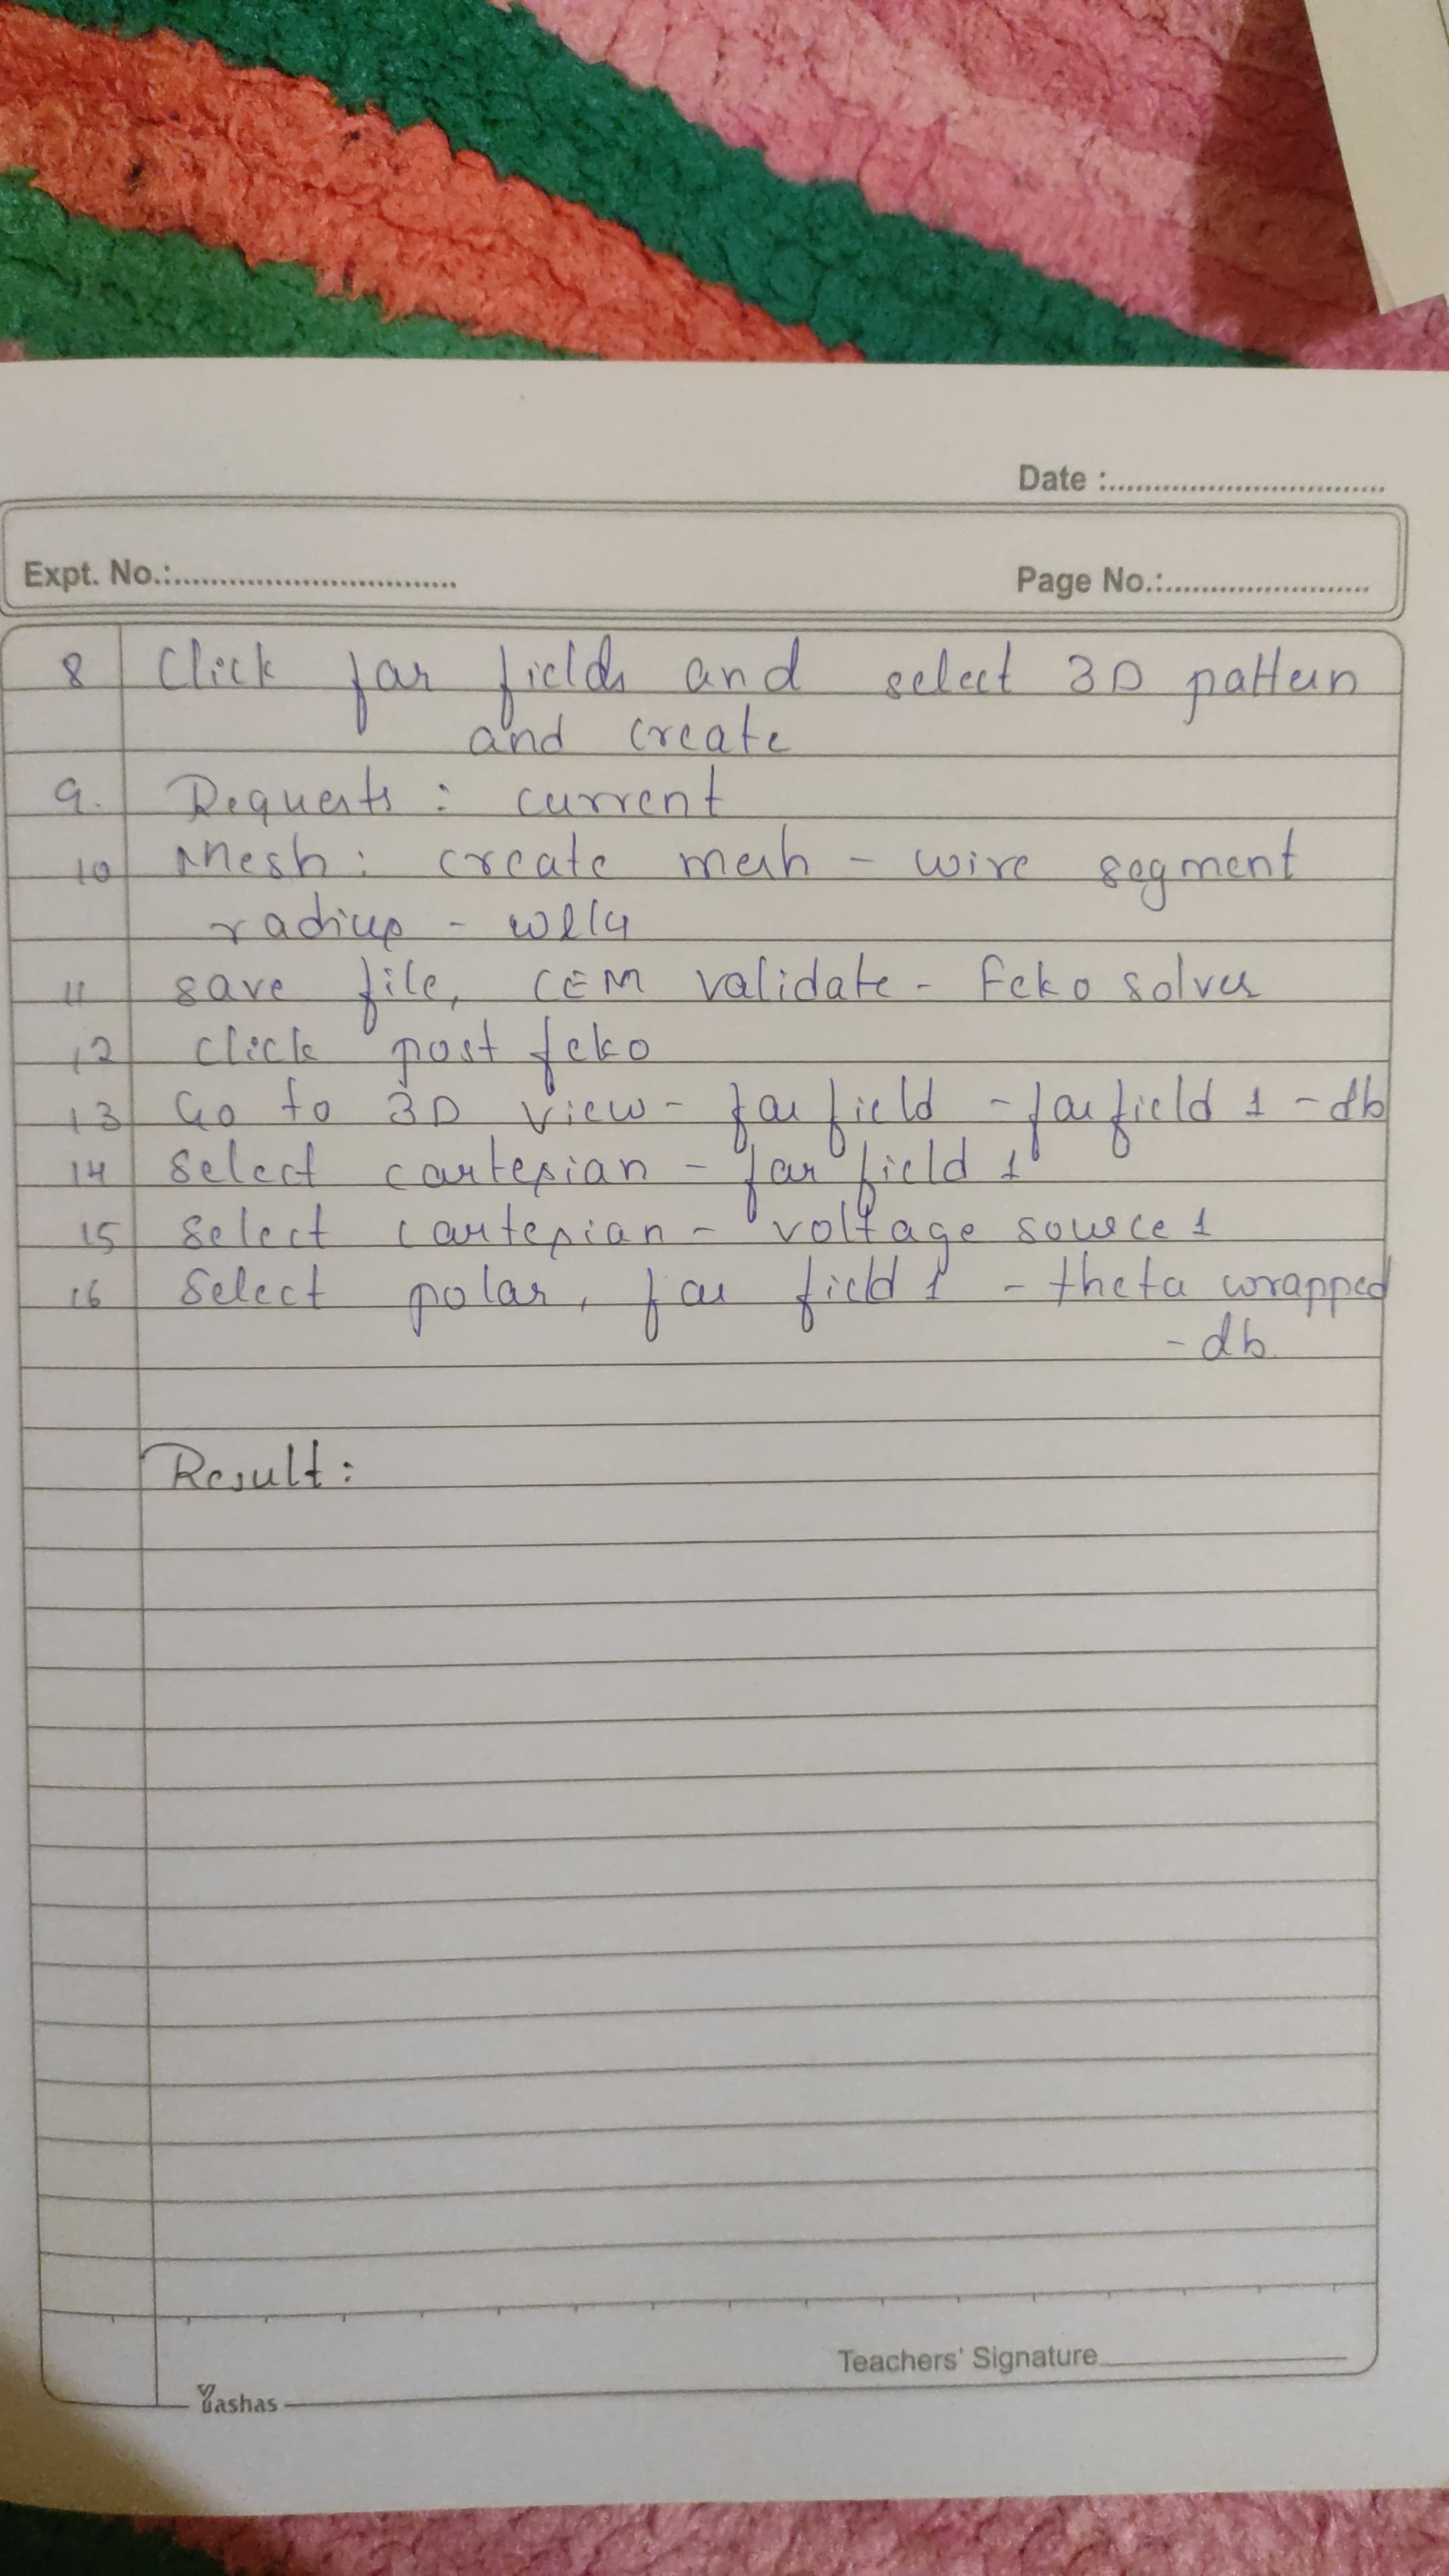 Date :
Expt. No.:
Page No.:
8 Click far fields and select 3D pattern
and create
9. Requests : current
10 Mesh : create mesh - wire segment
radius -
11 save file, CEM validate - Feko solver
12 click post feko
13 Go to 3D view - far field - farfield 1 - db
14 select cartesian - far field 1
15 select cartesian - voltage source 1
16 select polar, far field 1 - theta wrapped
- db
Result :
Teachers' Signature
Yashas